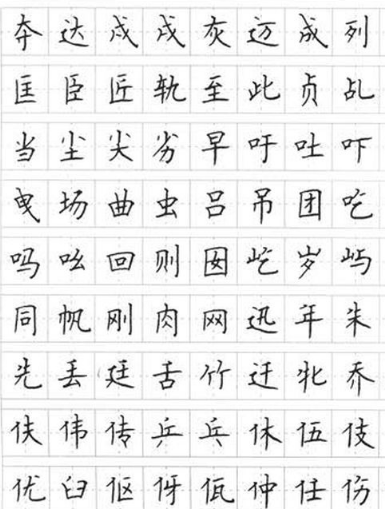 夲达戍戌灰迈成列
匡臣匠轨至此贞乩
当尘尖劣早吁吐吓
曳场曲虫吕吊团吃
吗吆回则囡屹岁屿
同帆刚肉网迅年朱
先丢廷舌竹迁牝乔
伕伟传乒乓休伍伎
优臼伛伢佤仲任伤